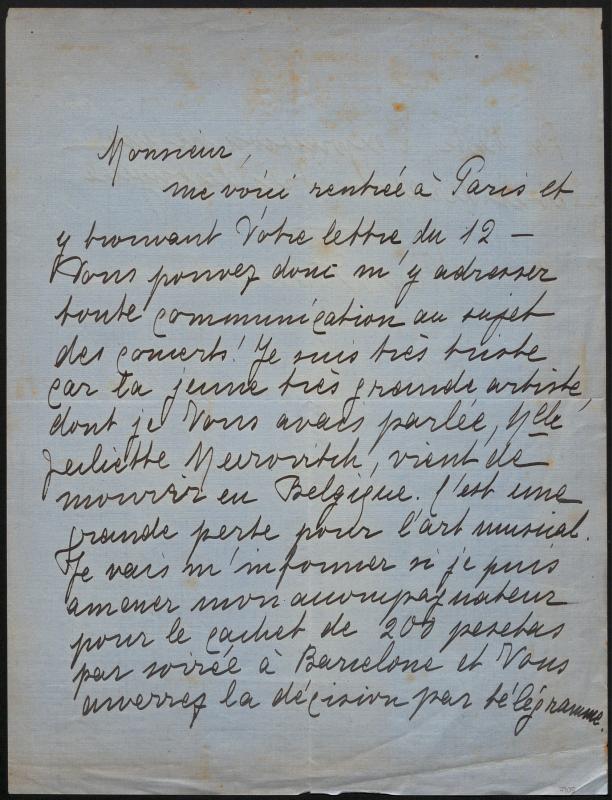 Monsieur,
me voici rentrée à Paris et
y trouvant Votre lettre du 12 —
Vous pouvez donc m'y adresser
toute communication au sujet
des concerts! Je suis très triste
car la jeune très grande artiste,
dont je Vous avais parlée, Mlle
Juliette Meerovitch, vient de
mourir en Belgique. C'est une
grande perte pour l'art musical.
Je vais m'informer si je puis
amener mon accompagnateur
pour le cachet de 200 pesetas
par soirée à Barcelone et Vous
enverrez la décision par télégramme.